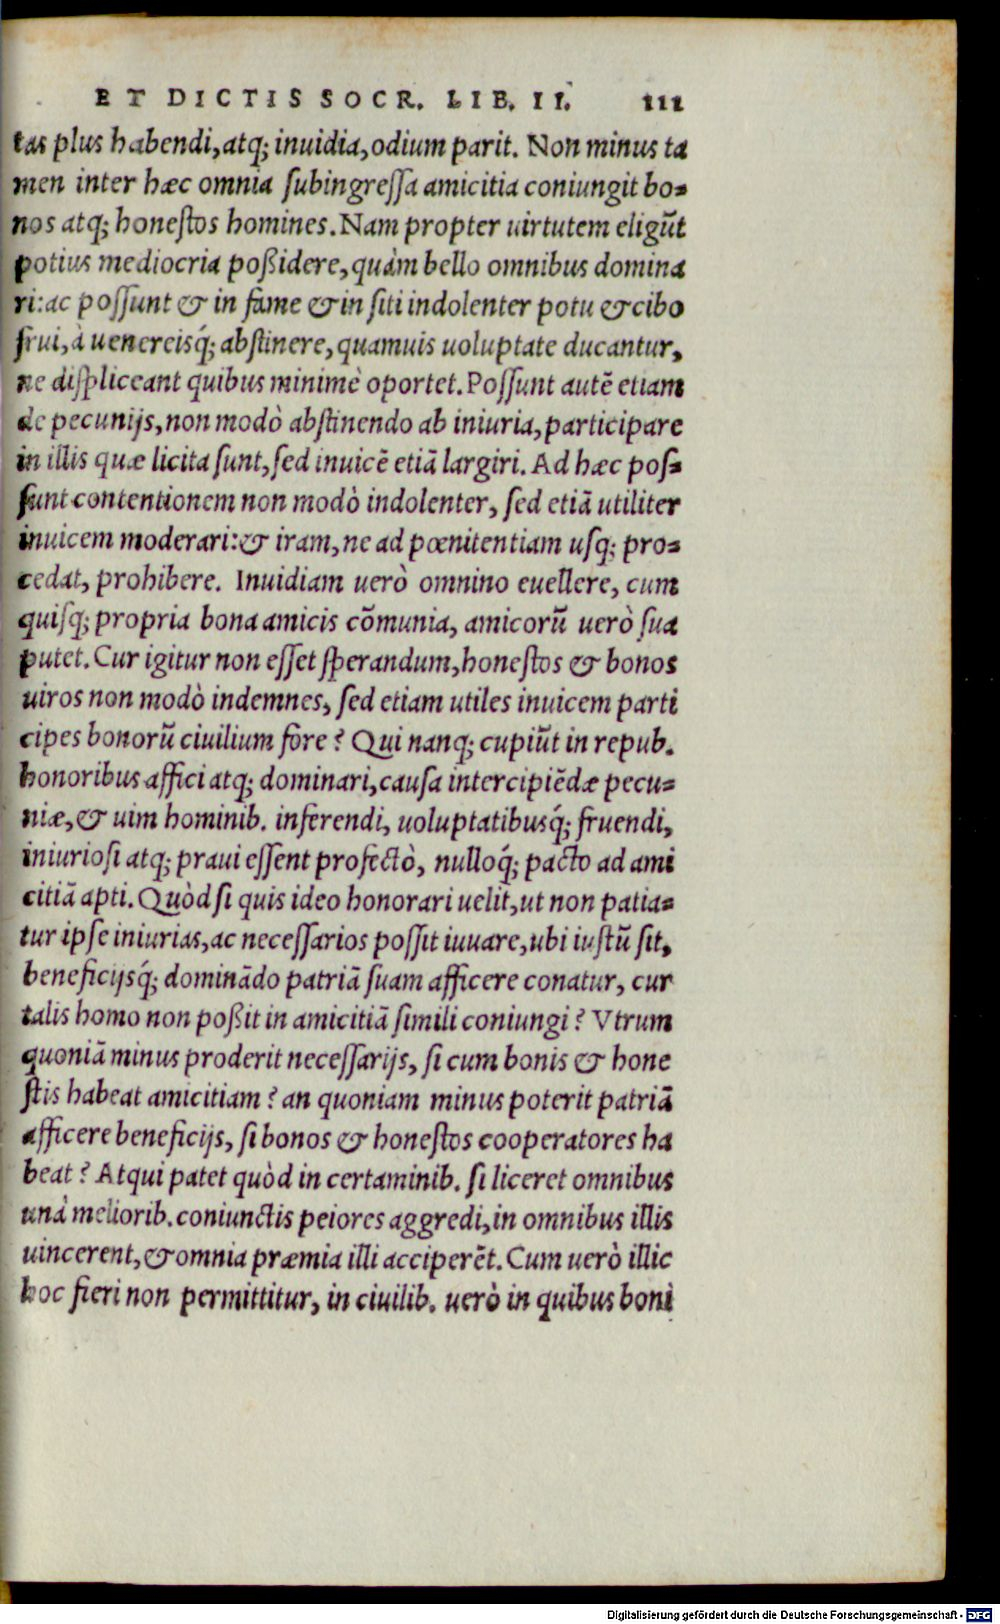 ET DICTIS SOCR. LIB. II. 111
tas plus habendi, atq; inuidia, odium parit. Non minus ta
men inter hæc omnia ſubingreſſa amicitia coniungit bo-
nos atq; honeſtos homines. Nam propter uirtutem eligũt
potius mediocria poßidere, quàm bello omnibus domina
ri: ac poſſunt & in fame & in ſiti indolenter potu & cibo
frui, à uenereisq́; abſtinere, quamuis uoluptate ducantur,
ne diſpliceant quibus minimè oportet. Poſſunt autẽ etiam
de pecunijs, non modò abſtinendo ab iniuria, participare
in illis quæ licita ſunt, ſed inuicẽ etiã largiri. Ad hæc poſ-
ſunt contentionem non modò indolenter, ſed etiã utiliter
inuicem moderari: & iram, ne ad pœnitentiam uſq; pro-
cedat, prohibere. Inuidiam uerò omnino euellere, cum
quiſq; propria bona amicis cõmunia, amicorũ uerò ſua
putet. Cur igitur non eſſet ſperandum, honeſtos & bonos
uiros non modò indemnes, ſed etiam utiles inuicem parti
cipes bonorũ ciuilium fore? Qui nanq; cupiũt in repub.
honoribus affici atq; dominari, cauſa intercipiẽdæ pecu-
niæ, & uim hominib. inferendi, uoluptatibusq́; fruendi,
iniurioſi atq; praui eſſent profectò, nulloq́; pacto ad ami
citiã apti. Quòd ſi quis ideo honorari uelit, ut non patia-
tur ipſe iniurias, ac neceſſarios poſſit iuuare, ubi iuſtũ ſit,
beneficijsq́; dominãdo patriã ſuam afficere conatur, cur
talis homo non poßit in amicitiã ſimili coniungi? Vtrum
quoniã minus proderit neceſſarijs, ſi cum bonis & hone
ſtis habeat amicitiam? an quoniam minus poterit patriã
afficere beneficijs, ſi bonos & honeſtos cooperatores ha
beat? Atqui patet quòd in certaminib. ſi liceret omnibus
unà meliorib. coniunctis peiores aggredi, in omnibus illis
uincerent, & omnia præmia illi acciperẽt. Cum uerò illic
hoc fieri non permittitur, in ciuilib. uerò in quibus boni
Digitalisierung gefördert durch die Deutsche Forschungsgemeinschaft - DFG